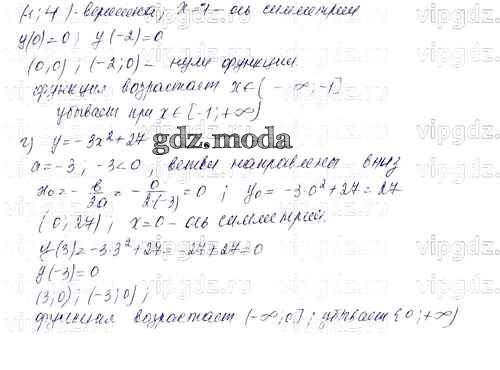 (-1;4) - вершина; x=-1 - ось симметрии
y(0)=0; y(-2)=0
(0,0); (-2;0) - нули функции.
функция возрастает x∈(-∞;-1]
убывает при x∈[-1;+∞)
г) y=-3x²+27
gdz.moda
a=-3; -3<0, ветви направлены вниз
x₀=-в/2a=-0/2·(-3)=0; y₀=-3·0²+27=27
(0;27); x=0 - ось симметрии.
y(3)=-3·3²+27=-27+27=0
y(-3)=0
(3;0); (-3;0);
функция возрастает (-∞;0]; убывает [0;+∞)
vipgdz